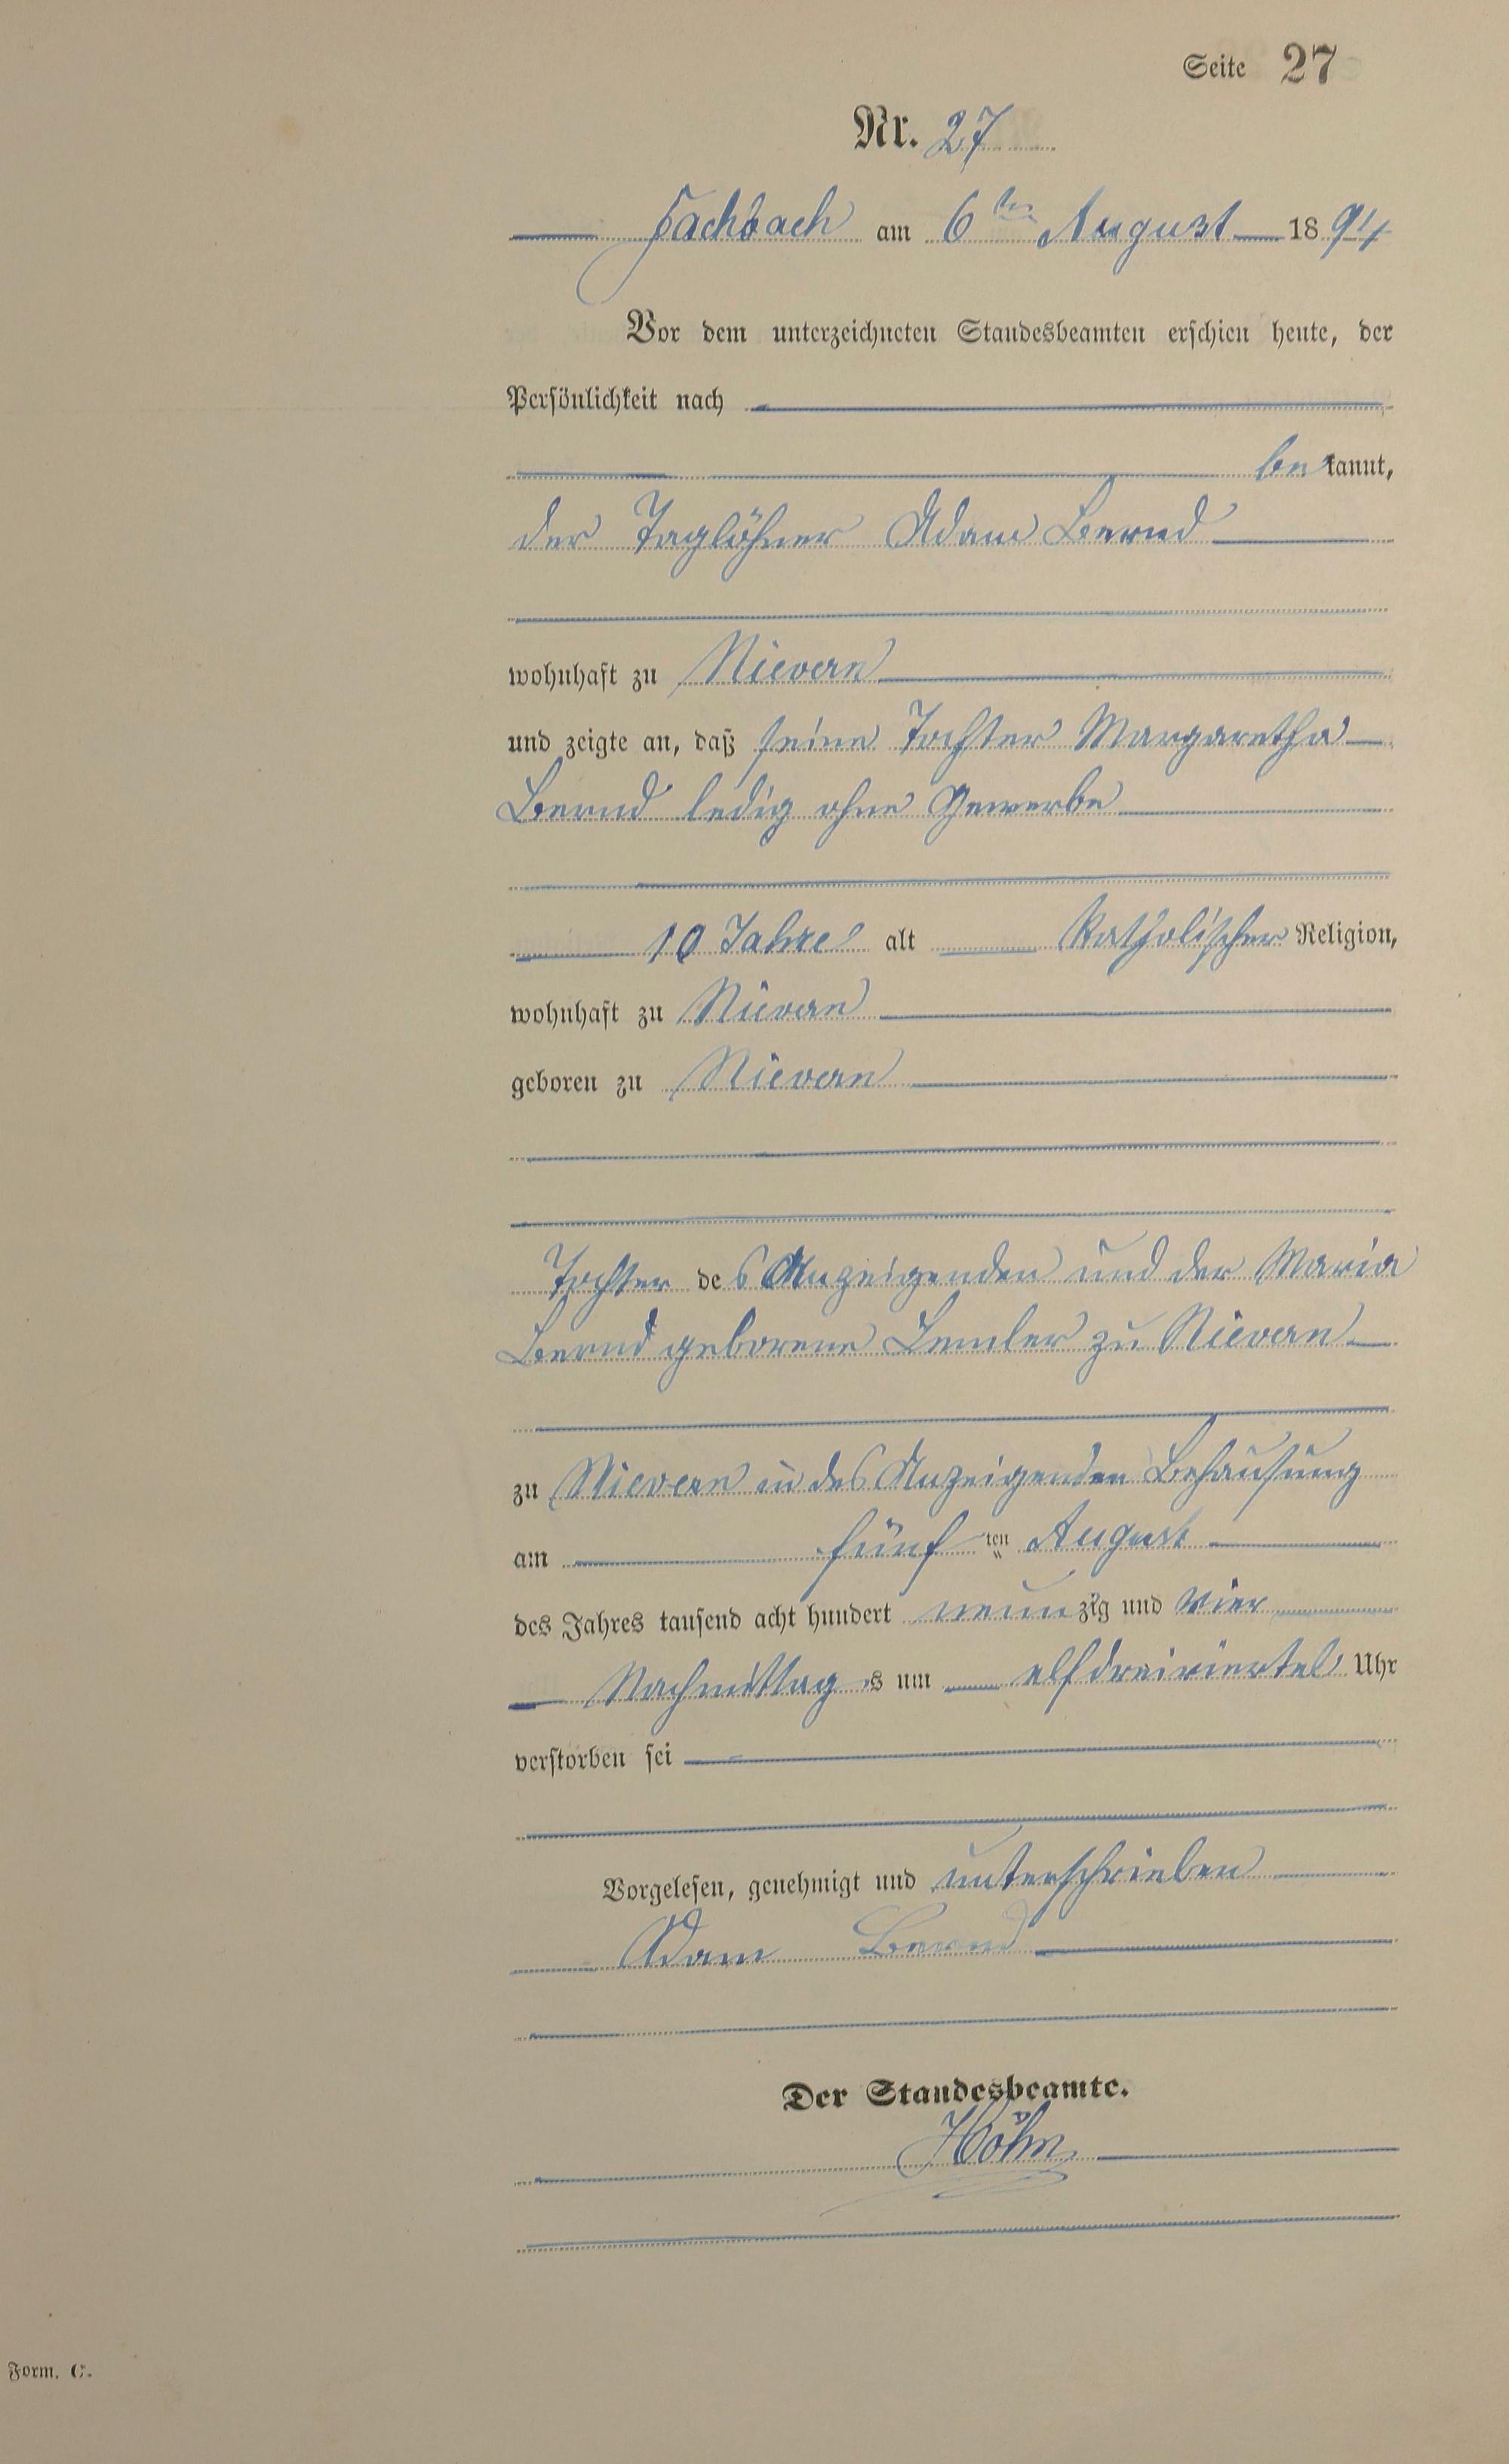 Seite 27
Nr. 27
Fachbach am 6ten August 1894
Vor dem unterzeichneten Standesbeamten erschien heute, der
Persönlichkeit nach
bekannt,
der Taglöhner Adam Bernd
wohnhaft zu Nievern
und zeigte an, daß seine Tochter Margaretha
Bernd ledig ohne Gewerbe
10 Jahre alt katholischer Religion,
wohnhaft zu Nievern
geboren zu Nievern
Tochter des Anzeigenden und der Maria
Bernd geborene Lemler zu Nievern
zu Nievern in des Anzeigenden Behausung
am fünften August
des Jahres tausend acht hundert neunzig und vier
Nachmittags um elf dreiviertel Uhr
verstorben sei
Vorgelesen, genehmigt und unterschrieben
Adam Bernd
Der Standesbeamte.
Höhn
Form. C.